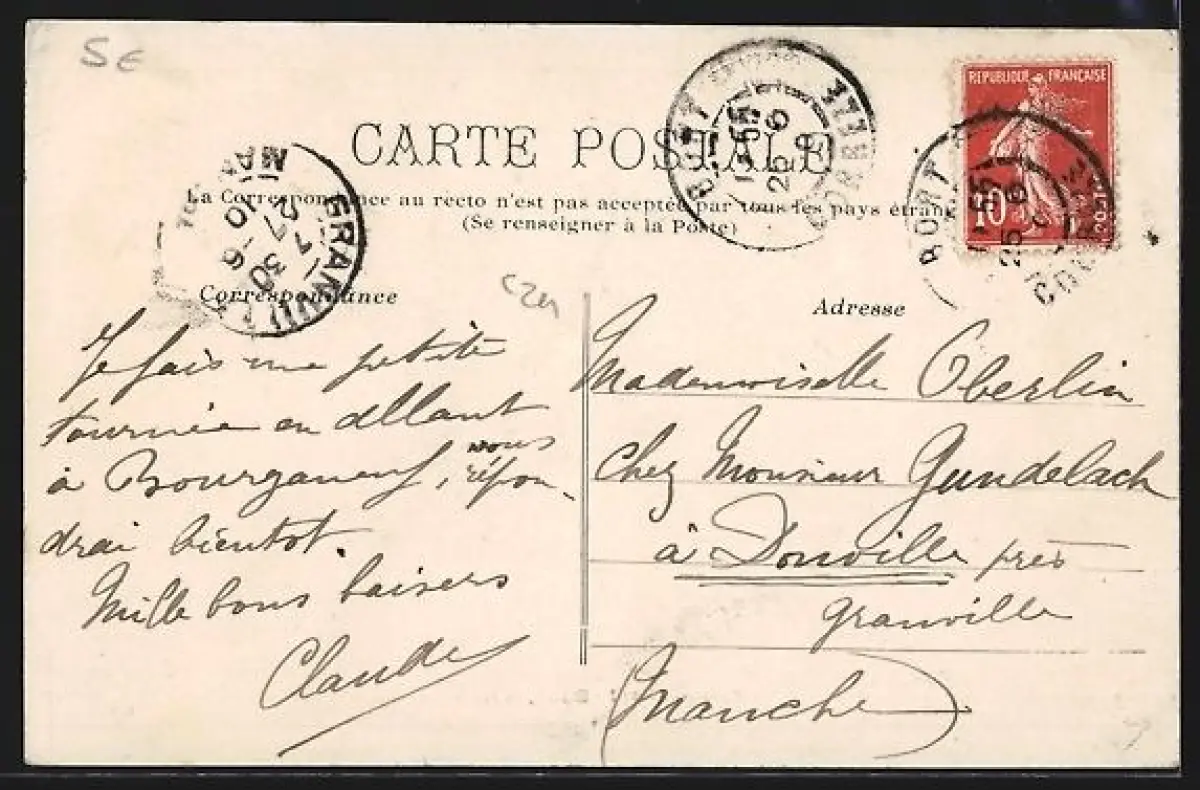 5 €
CARTE POSTALE
La Correspondance au recto n'est pas acceptée par tous les pays étrang
(Se renseigner à la Poste)
BORT
CORREZE
25 6
REPUBLIQUE FRANÇAISE
10
BORT
25 6
GRANVILLE
7 30
27 6
10
Correspondance
Adresse
Je fais une petite
tournée en allant
à Bourganeuf, vous répon-
drai bientot.
Mille bons baisers
Claude
Mademoiselle Oberlin
chez Monsieur Gundelach
à Donville près
Granville
(Manche)